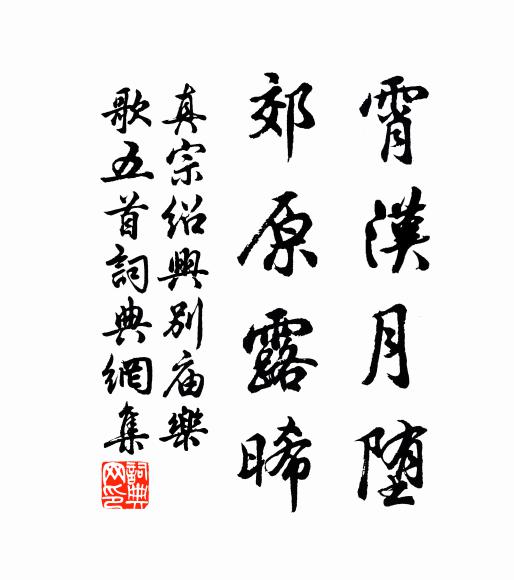 霄漢月墮
郊原露晞
真宗紹興別庙樂
歌五首詞典網集
詞典
网印